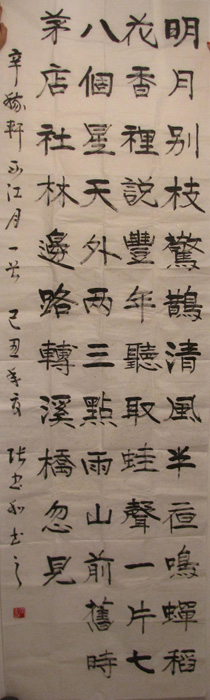 明月别枝驚鵲清風半夜鳴蟬稻
花香裡説豐年聽取蛙聲一片七
八個星天外两三點雨山前舊時
茅店社林邊路轉溪橋忽見
辛稼軒西江月一首 己丑年夏 张